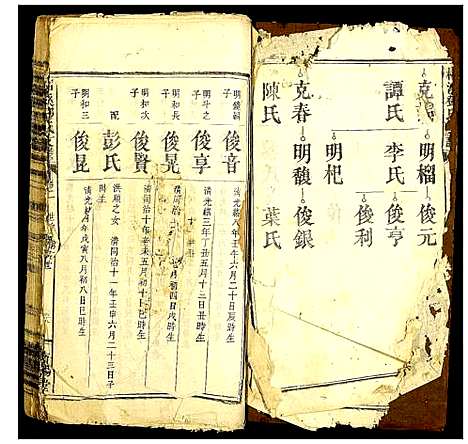 克
明榴
俊元
譚氏
李氏
俊亨
明杞
俊利
克春
明馥
俊銀
陳氏
葉氏
子
俊音
清光緒八年壬午六月二十日辰時生
明斗之子
俊享
清光緒三年丁丑五月十二日丑時生
明和長子
俊晃
清同治
月初四日戌時生
明和次子
俊賢
清同治十年辛未五月初十日巳時生
配
彭氏
洪順之女
清同治十一年壬申六月二十三日子時生
明和三子
俊昆
清光緒四年戊寅八月初八日巳時生